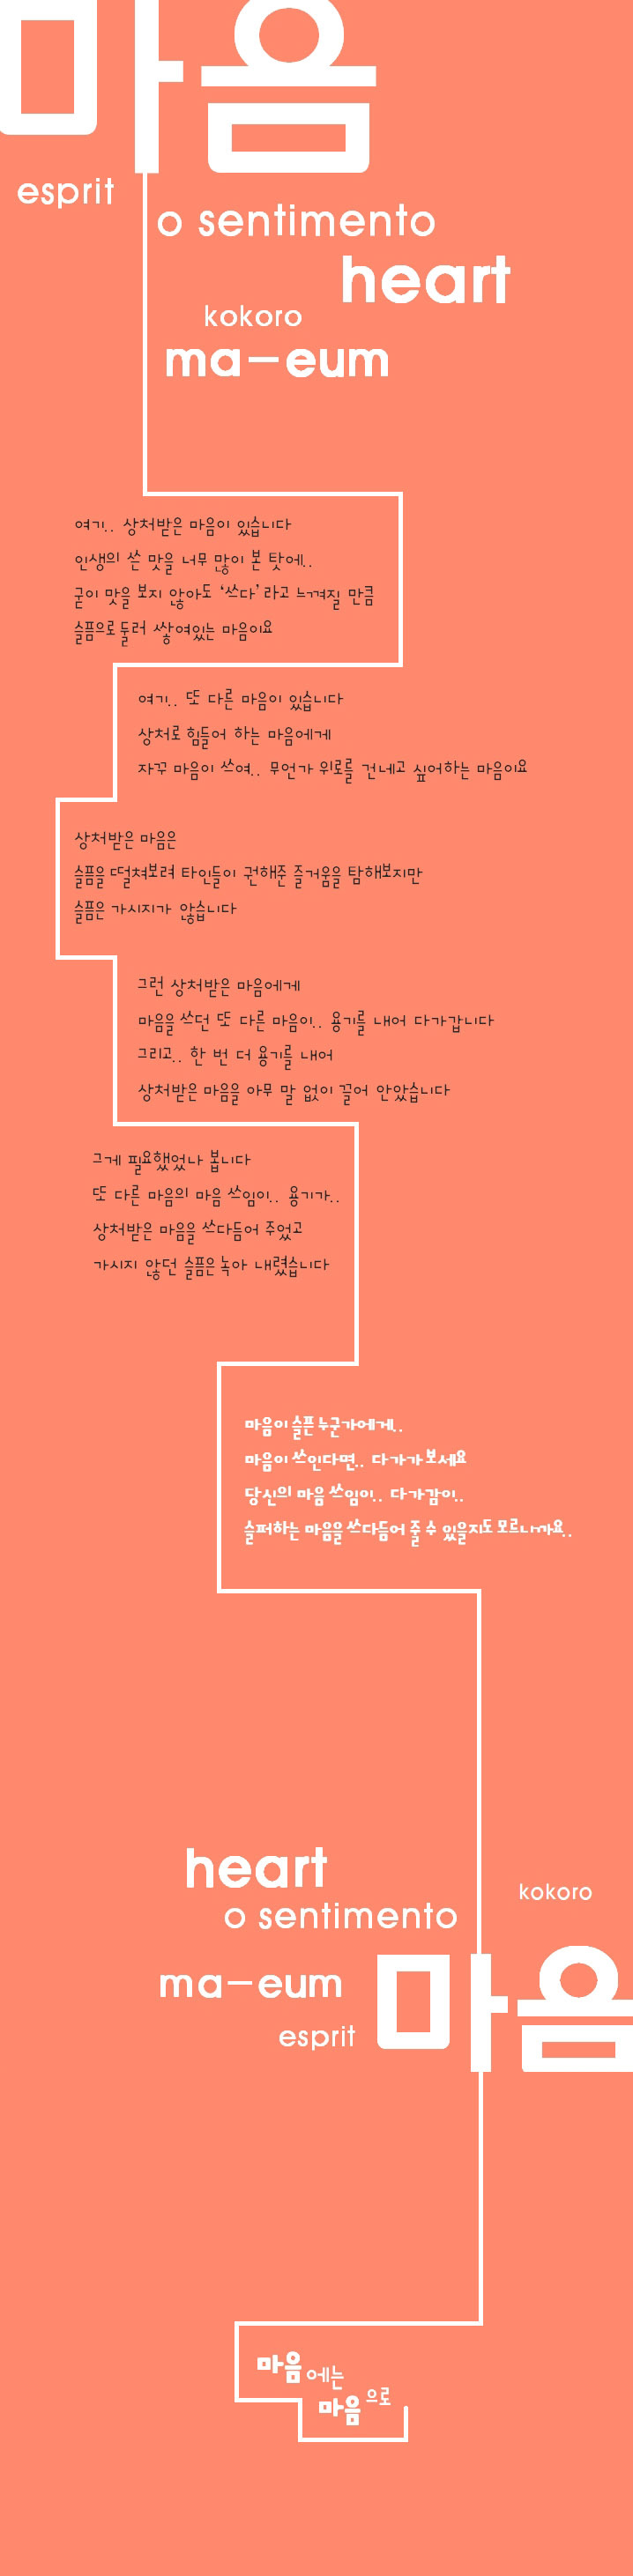 마음
esprit
o sentimento
heart
kokoro
ma–eum
여기.. 상처받은 마음이 있습니다
인생의 쓴 맛을 너무 많이 본 탓에..
굳이 맛을 보지 않아도 ‘쓰다’ 라고 느껴질 만큼
슬픔으로 둘러 쌓여있는 마음이요
여기.. 또 다른 마음이 있습니다
상처로 힘들어 하는 마음에게
자꾸 마음이 쓰여.. 무언가 위로를 건네고 싶어하는 마음이요
상처받은 마음은
슬픔을 떨쳐보려 타인들이 권해준 즐거움을 탐해보지만
슬픔은 가시지가 않습니다
그런 상처받은 마음에게
마음을 쓰던 또 다른 마음이.. 용기를 내어 다가갑니다
그리고.. 한 번 더 용기를 내어
상처받은 마음을 아무 말 없이 끌어 안았습니다
그게 필요했었나 봅니다
또 다른 마음의 마음 쓰임이.. 용기가..
상처받은 마음을 쓰다듬어 주었고
가시지 않던 슬픔은 녹아 내렸습니다
마음이 슬픈 누군가에게..
마음이 쓰인다면.. 다가가 보세요
당신의 마음 쓰임이.. 다가감이..
슬퍼하는 마음을 쓰다듬어 줄 수 있을지도 모르니까요..
heart
kokoro
o sentimento
ma–eum
마음
esprit
마음에는
마음으로